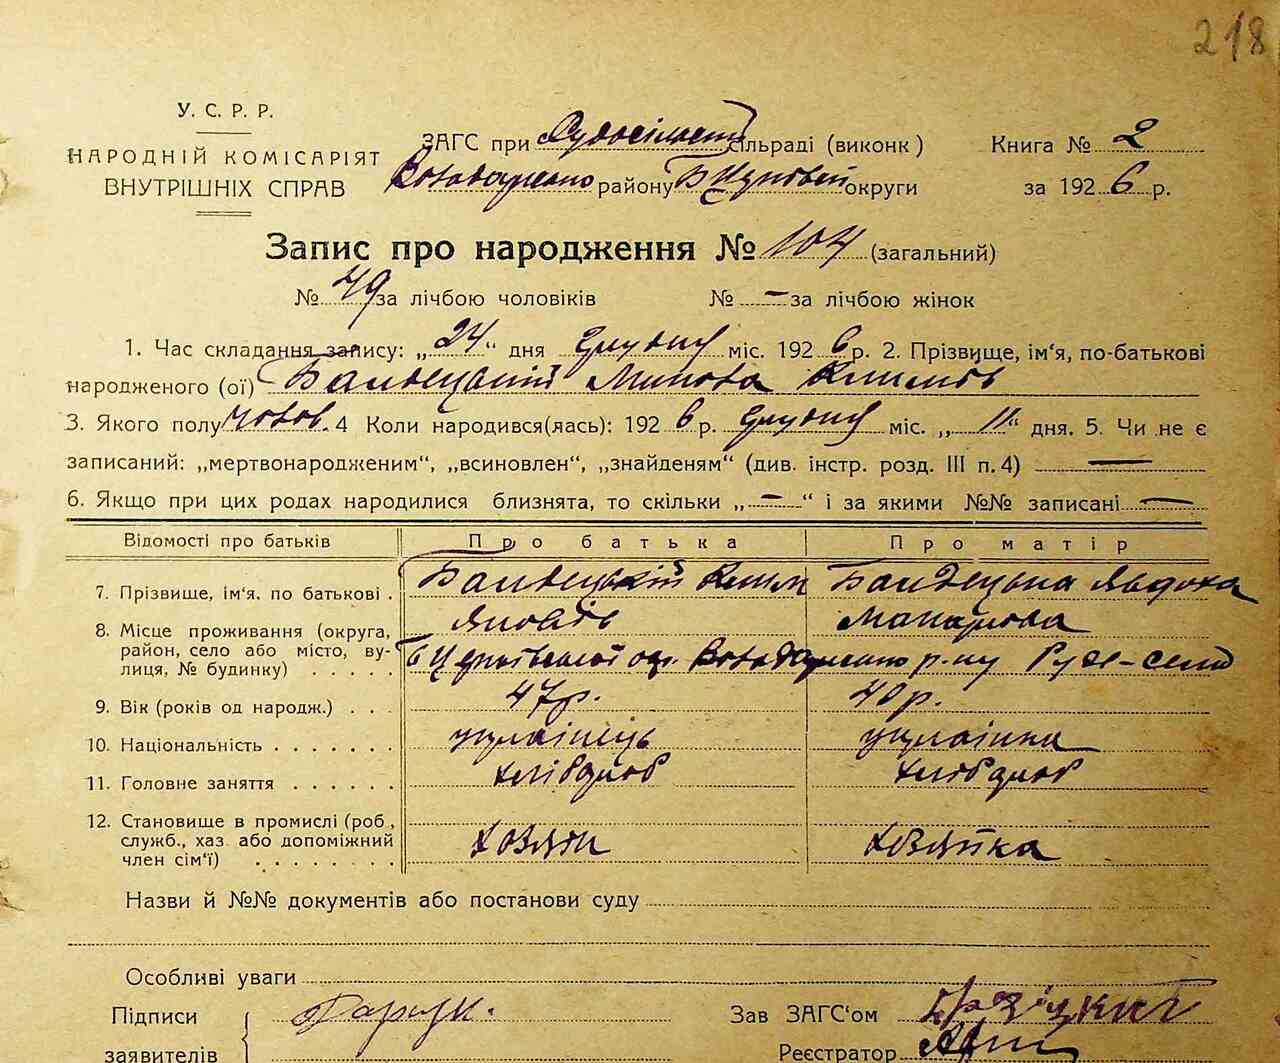 218
У. С. Р. Р.
НАРОДНІЙ КОМІСАРІЯТ
ВНУТРІШНІХ СПРАВ
ЗАГС при Рудосільській сільраді (виконк )
Володарського району Б Церковської округи
Книга № 2
за 1926 р.
Запис про народження № 104 (загальний)
№ 49 за лічбою чоловіків № – за лічбою жінок
1. Час складання запису: „24“ дня грудня міс. 1926 р. 2. Прізвище, ім‘я, по-батькові
народженого (ої) Балдецький Микола Климов
3. Якого полу чолов. 4 Коли народився(лась): 1926 р. грудня міс. „11“ дня. 5. Чи не є
записаний: „мертвонародженим“, „всиновлен“, „знайденям“ (див. інстр. розд. III п. 4) —
6. Якщо при цих родах народилися близнята, то скільки „–“ і за якими №№ записані —
Відомості про батьків Про батька Про матір
7. Прізвище, ім‘я. по батькові . Балдецький Клим Балдецька Явдоха
Макарова
8. Місце проживання (округа, район, село або місто, вулиця, № будинку) . . . . . Б Церківської окр. Володарського р-ну Руде-село
9. Вік (років од народж.) . . . 47 р. 40 р.
10. Національність . . . . . . . українець українка
11. Головне заняття . . . . . . хлібороб хлібороб
12. Становище в промислі (роб., служб., хаз або допоміжний член сім‘ї) . . . . . . . . хозяїн хозяйка
Назви й №№ документів або постанови суду
Особливі уваги
Підписи
заявителів
Зав ЗАГС‘ом
Реєстратор